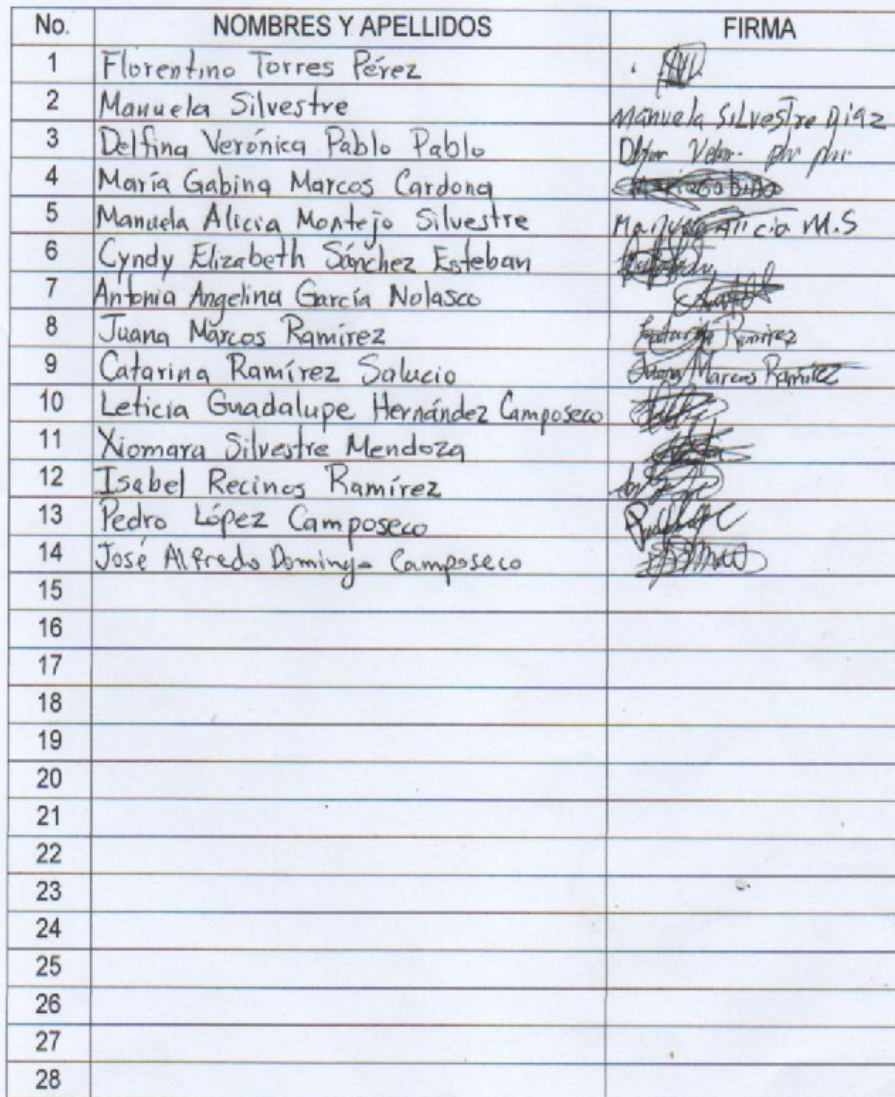 No. NOMBRES Y APELLIDOS FIRMA
1 Florentino Torres Pérez
2 Manuela Silvestre Manuela Silvestre Diaz
3 Delfina Verónica Pablo Pablo
4 María Gabina Marcos Cardona
5 Manuela Alicia Montejo Silvestre Manuela Alicia M.S
6 Cyndy Elizabeth Sánchez Esteban
7 Antonia Angelina García Nolasco
8 Juana Marcos Ramírez Catarina Ramirez
9 Catarina Ramírez Salucio Juana Marcos Ramírez
10 Leticia Guadalupe Hernández Camposeco
11 Xiomara Silvestre Mendoza
12 Isabel Recinos Ramírez
13 Pedro López Camposeco
14 José Alfredo Domingo Camposeco
15
16
17
18
19
20
21
22
23
24
25
26
27
28